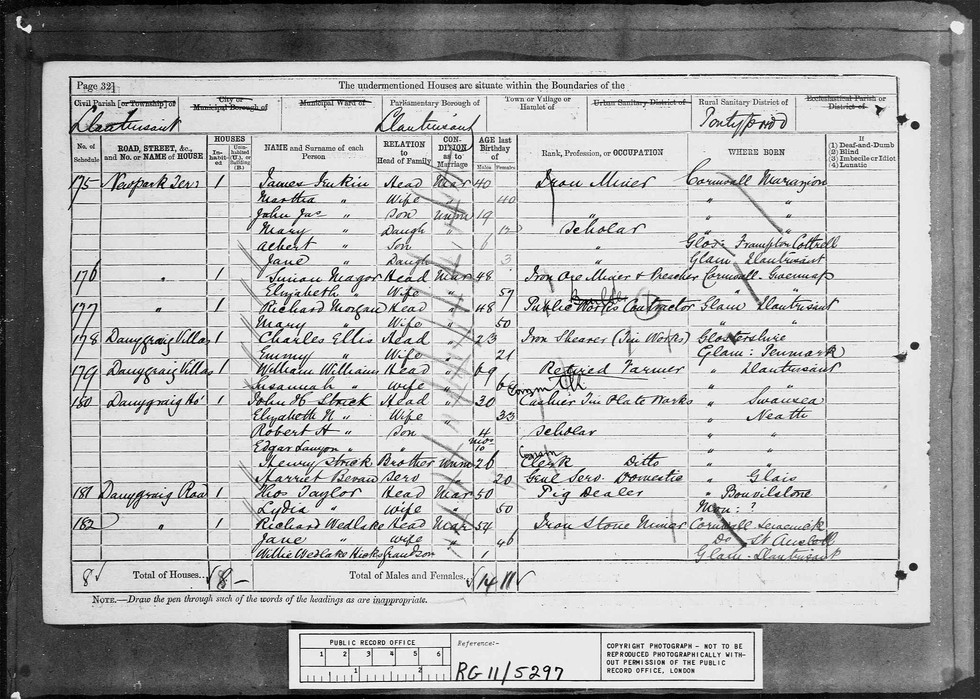 Page 32]
The undermentioned Houses are situate within the Boundaries of the
Civil Parish [or Township] of
City or Municipal Borough of
Municipal Ward of
Parliamentary Borough of
Town or Village or Hamlet of
Urban Sanitary District of
Rural Sanitary District of
Ecclesiastical Parish or District of
Llantrisant Llantrisant Pontypridd
No. of Schedule
ROAD, STREET, &c., and No. or NAME of HOUSE
HOUSES
Inhabited
Uninhabited (U.), or Building (B.)
NAME and Surname of each Person
RELATION to Head of Family
CONDITION as to Marriage
AGE last Birthday of
Males Females
Rank, Profession, or OCCUPATION
WHERE BORN
If
(1) Deaf-and-Dumb
(2) Blind
(3) Imbecile or Idiot
(4) Lunatic
175 Newpark Ter. 1 James Head Mar 40 Iron Miner Cornwall Marazion
Martha " Wife " 40 " "
John Jas " Son Unm 19 " " "
Mary " Daugh 12 Scholar " "
" Son 6 " Glos: Frampton Cottrell
Jane " Daugh 3 Glam Llantrisant
176 " 1 Magor Head Mar 48 Iron Ore Miner & Cornwall
Elizabeth " Wife " 57 " "
177 " 1 Richard Morgan Head " 48 Public Works Contractor Glam Llantrisant
Mary " Wife " 50 " "
178 Danygraig Villas 1 Charles Ellis Head " 23 Iron Shearer (Tin Works) Glostershire
Emmy " Wife " 21 Glam: Penmark
179 Danygraig Villas 1 William Williams Head " 69 Retired Farmer " Llantrisant
Susannah " Wife " " "
180 Danygraig Ho' 1 John H Strick Head " 30 Cashier Tin Plate Works " Swansea
Elizabeth N " Wife " 33 " Neath
Robert H " Son 4 Scholar " "
Edgar Lawson " " mos 10 " "
Henry Strick Brother Unm 26 Clerk Ditto " "
Harriet Bevan Serv " 20 Genl Serv. Domestic " Glais
181 Danygraig Road 1 Thos Taylor Head Mar 50 Pig Dealer " Bonvilstone
Lydia " Wife " 50 Mon: ?
182 " 1 Richard Wedlake Head Mar 54 Iron Stone Miner Cornwall
Jane " Wife " 46 Do St Austell
Willie Wedlake Hicks Grandson 1 Glam Llantrisant
8 Total of Houses.. 8 – Total of Males and Females.. 14 11
NOTE.—Draw the pen through such of the words of the headings as are inappropriate.
PUBLIC RECORD OFFICE
1 2 3 4 5 6
1 2
Reference:-
RG 11/5297
COPYRIGHT PHOTOGRAPH - NOT TO BE
REPRODUCED PHOTOGRAPHICALLY WITH-
OUT PERMISSION OF THE PUBLIC
RECORD OFFICE, LONDON